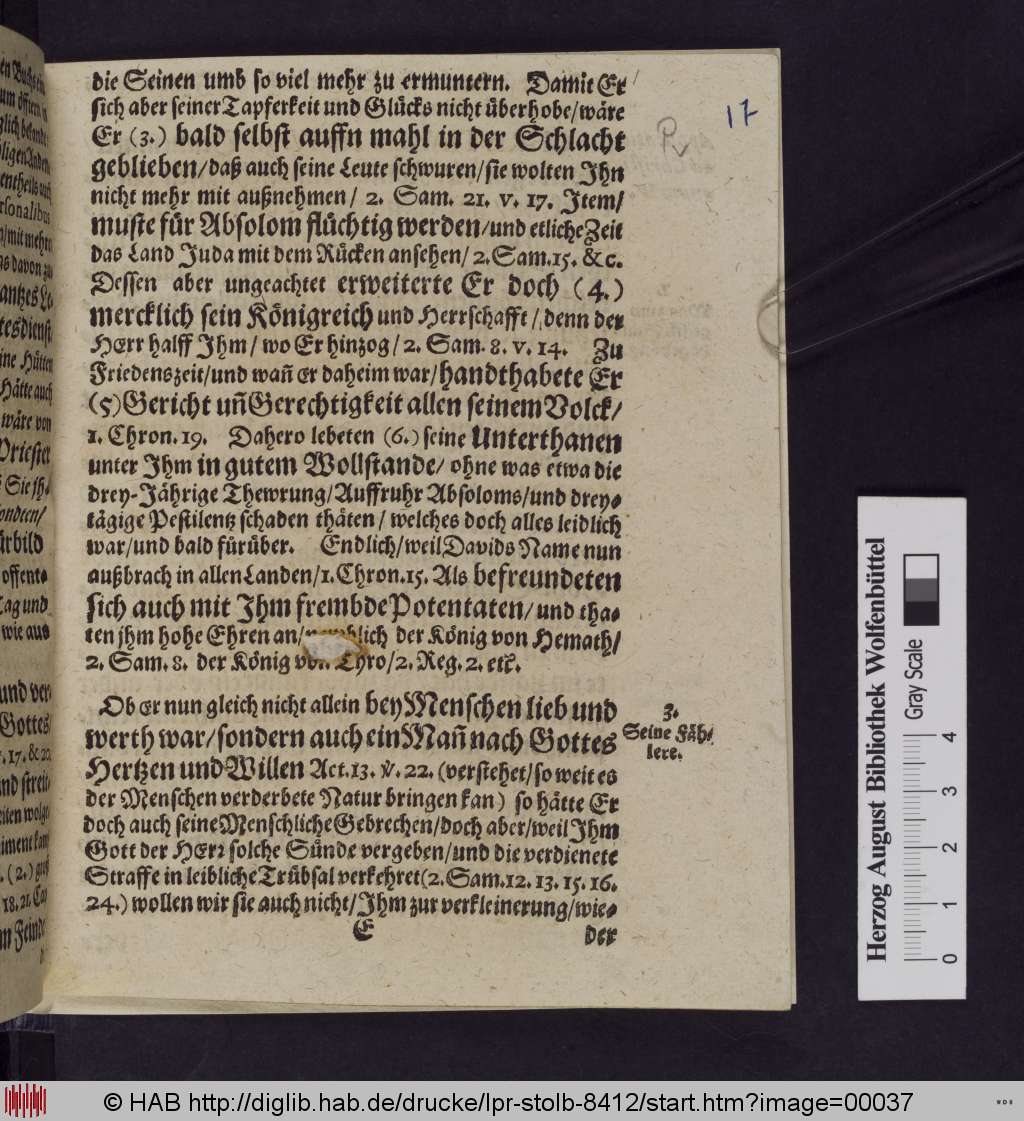 die Seinen umb so viel mehr zu ermuntern. Damit Er
sich aber seiner Tapferkeit und Glücks nicht überhobe/wäre
Er (3.) bald selbst auffn mahl in der Schlacht
geblieben/daß auch seine Leute schwuren/sie wolten Ihn
nicht mehr mit außnehmen/ 2. Sam. 21. v. 17. Item/
muste für Absolom flüchtig werden/und etliche Zeit
das Land Juda mit dem Rücken ansehen/2.Sam.15. &c.
Dessen aber ungeachtet erweiterte Er doch (4.)
mercklich sein Königreich und Herrschafft/denn der
HErr halff Ihm/wo Er hinzog/2. Sam. 8. v. 14. Zu
Friedenszeit/und wañ er daheim war/handthabete Er
(5) Gericht uñ Gerechtigkeit allen seinem Volck/
1. Chron. 19. Dahero lebeten (6.) seine Unterthanen
unter Ihm in gutem Wollstande/ohne was etwa die
drey-Jährige Thewrung/Auffruhr Absoloms/und drey-
tägige Pestilentz schaden thäten/welches doch alles leidlich
war/und bald fürüber. Endlich/weil Davids Name nun
außbrach in allen Landen/1.Chron.15. Als befreundeten
sich auch mit Ihm frembde Potentaten/und tha-
ten jhm hohe Ehren an/ der König von Hemath/
2. Sam. 8. der König von Tyro/2. Reg. 2. etc.
Ob er nun gleich nicht allein bey Menschen lieb und
werth war/sondern auch ein Mañ nach Gottes
Hertzen und Willen Act.13. v. 22. (verstehet/so weit es
der Menschen verderbete Natur bringen kan) so hätte Er
doch auch seine Menschliche Gebrechen/doch aber/weil Ihm
Gott der HErr solche Sünde vergeben/und die verdienete
Straffe in leibliche Trübsal verkehret(2.Sam.12.13.15.16.
24.) wollen wir sie auch nicht/Ihm zur verkleinerung/wie-
E der
3.
Seine Fäh-
lere.
17
Herzog August Bibliothek Wolfenbüttel
Gray Scale
0 1 2 3 4
© HAB http://diglib.hab.de/drucke/lpr-stolb-8412/start.htm?image=00037